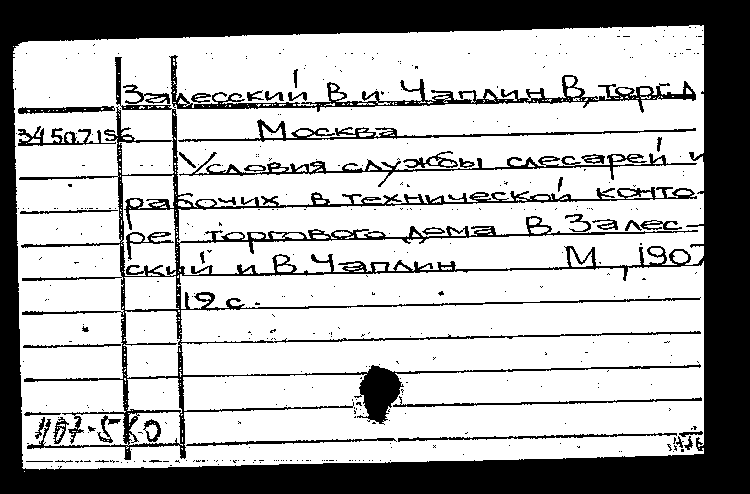 Залесский, В. и Чаплин В., торг. д.
34.50.7.156. Москва
Условия службы слесарей и
рабочих в технической конто-
ре торгового дома В. Залес-
ский и В. Чаплин. М., 1907
19 с.